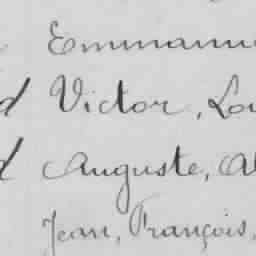 Emmanu
d Victor, Lou
d Auguste, Al
Jean, François,